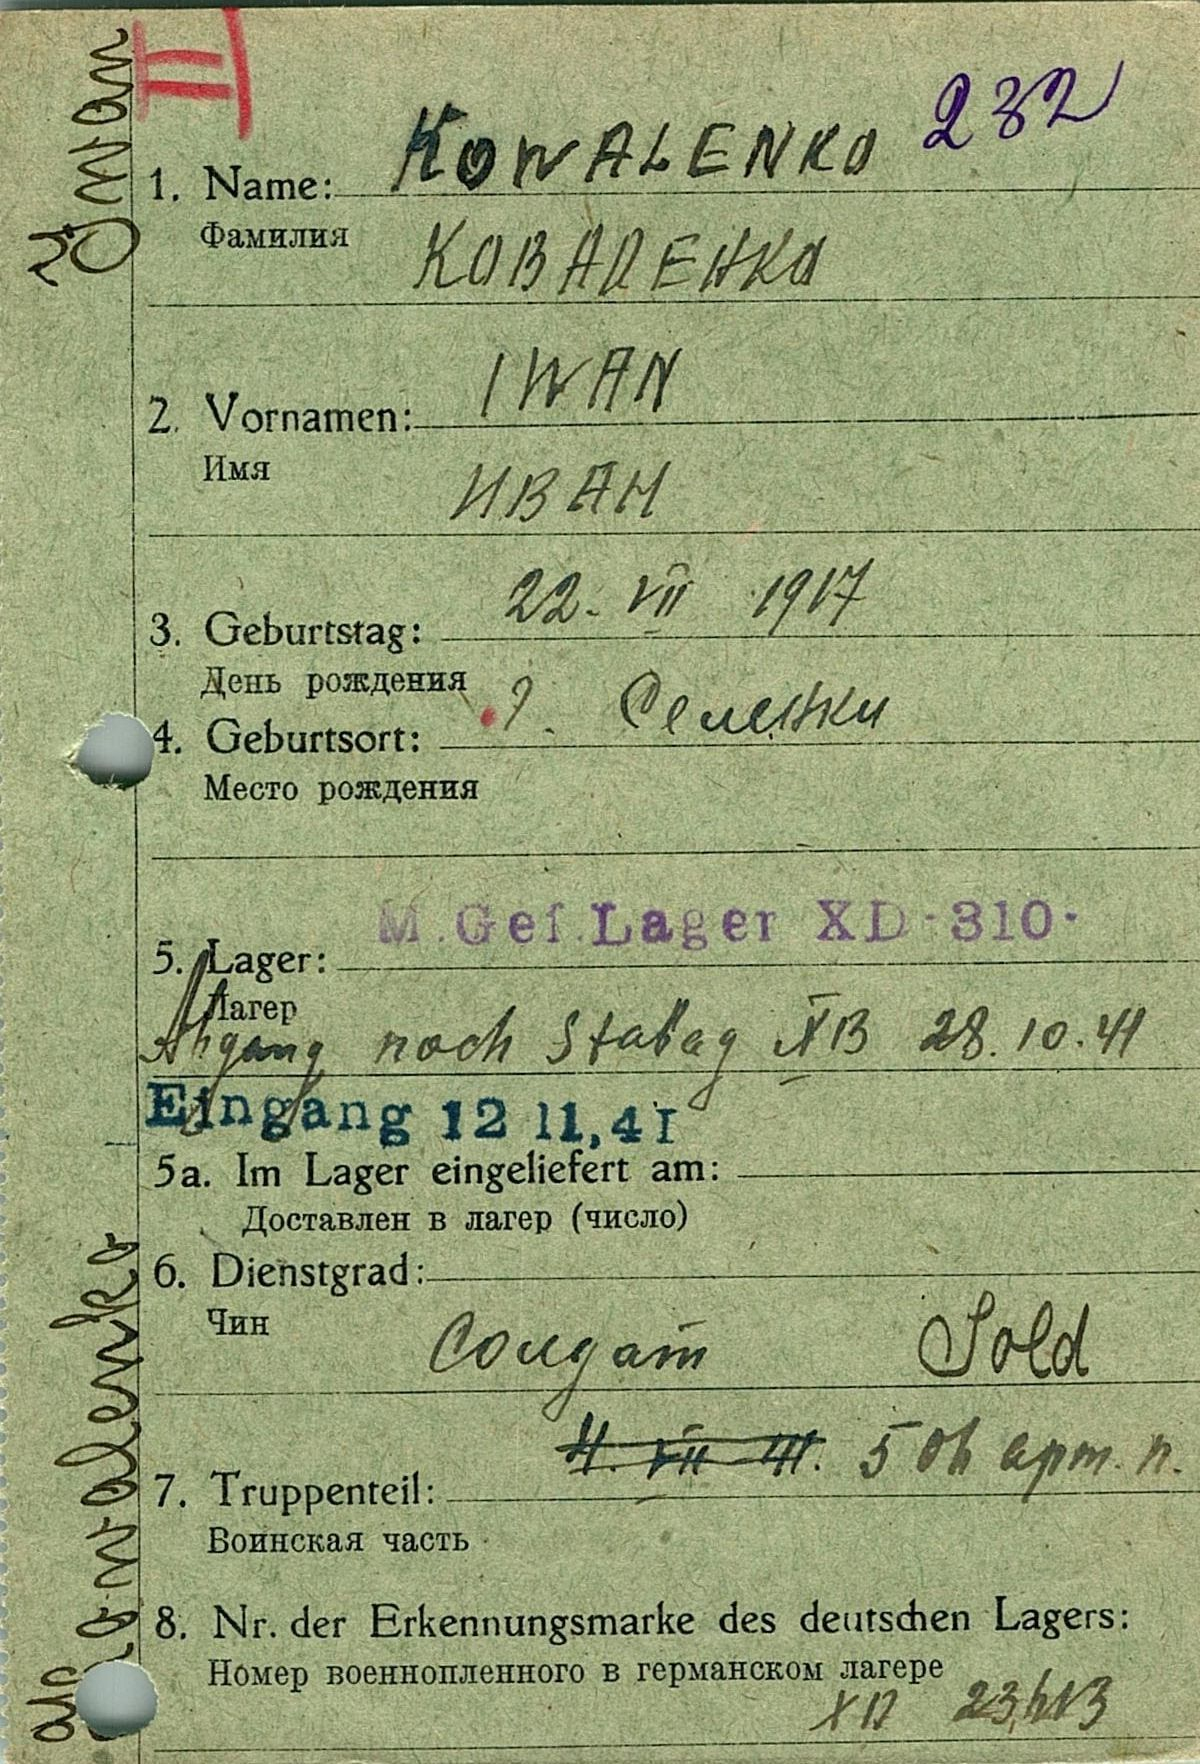 II
232
1. Name: KOWALENKO
Фамилия
КОВАЛЕНКО
2. Vornamen: IWAN
Имя
ИВАН
3. Geburtstag: 22. VII 1917
День рождения
4. Geburtsort: ?. Селенки
Место рождения
5. Lager: M. Gef. Lager XD-310-
Лагер
Abgang nach Stalag XB 28.10.41
Eingang 12 11,41
5a. Im Lager eingeliefert am:
Доставлен в лагер (число)
6. Dienstgrad:
Чин
Солдат Sold
7. Truppenteil: 4. VII 41. 5 арт. п.
Воинская часть
8. Nr. der Erkennungsmarke des deutschen Lagers:
Номер военнопленного в германском лагере
XD
Kowalenko
Iwan